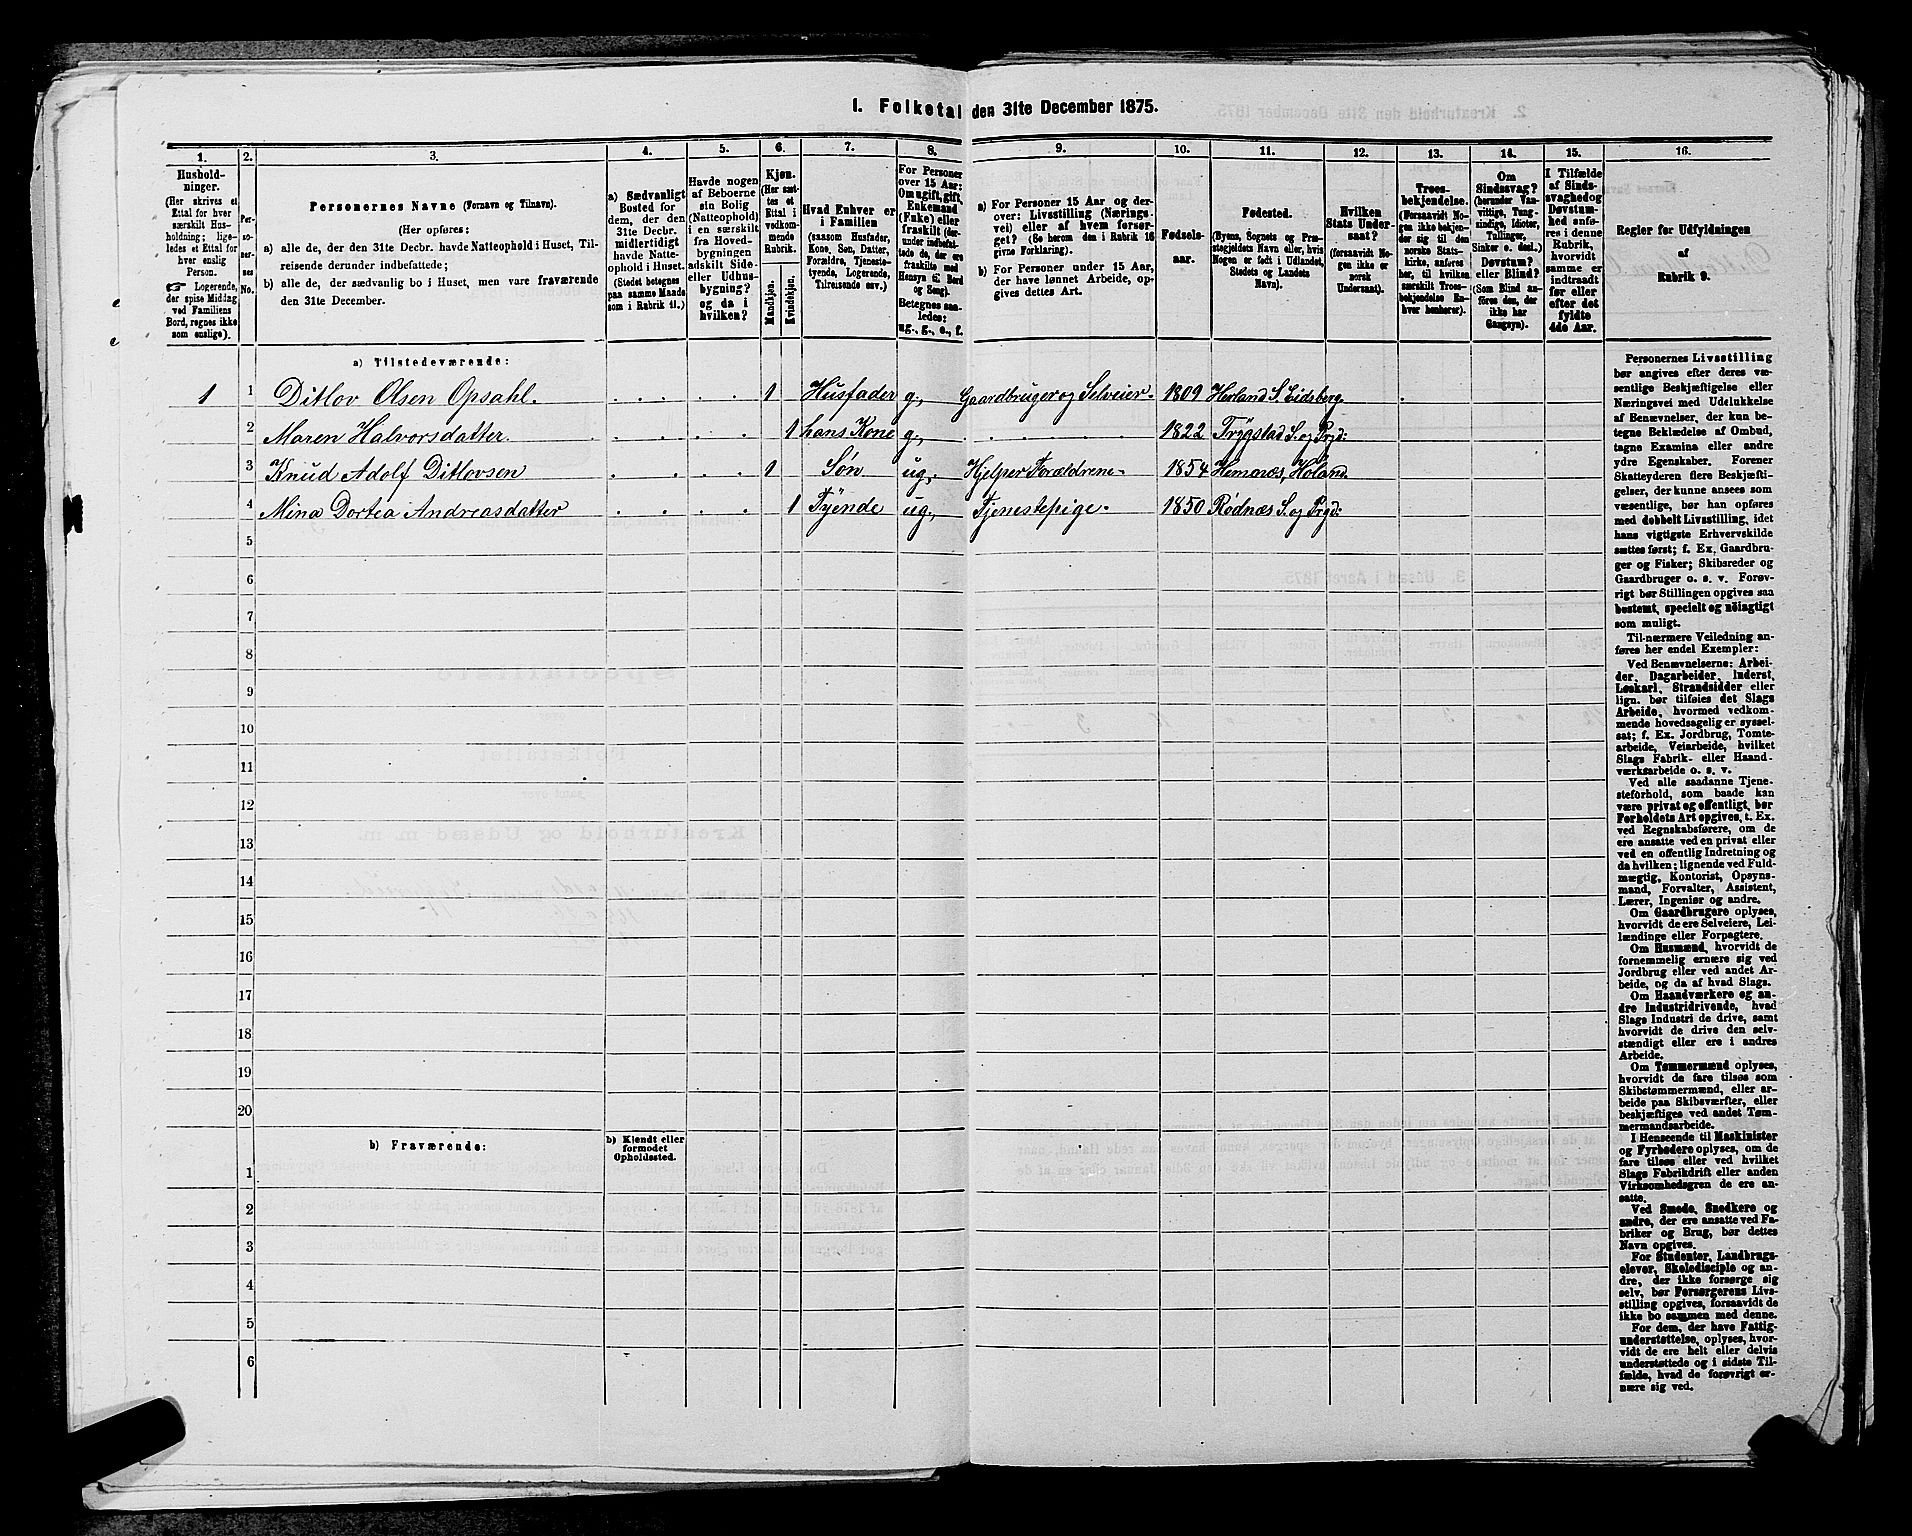 1. Folketal den 31te December 1875.
1.
2.
3.
4.
5.
6.
7.
8.
9.
10.
11.
12.
13.
14.
15.
16.
Hushold-
ninger.
(Her skrives et
Ettal for hver
særskilt Hus-
holdning; lige-
ledes et Ettal for
hver enslig
Person.
☛ Logerende,
der spise Middag
ved Familiens
Bord, regnes ikke
som enslige).
Per-
so-
ner-
nes
No.
Personernes Navne (Fornavn og Tilnavn).
(Her opføres:
a) alle de, der den 31te Decbr. havde Natteophold i Huset, Til-
reisende derunder indbefattede;
b) alle de, der sædvanlig bo i Huset, men vare fraværende
den 31te December.
a) Sædvanligt
Bosted for
dem, der den
31te Decbr.
midlertidigt
havde Natte-
ophold i Huset.
(Stedet betegnes
paa samme Maade
som i Rubrik 11.)
Havde nogen
af Beboerne
sin Bolig
(Natteophold)
i en særskilt
fra Hoved-
bygningen
adskilt Side-
eller Udhus-
bygning?
og da i
hvilken?
Kjøn.
(Her sæt-
tes et
Ettal i
vedkom-
mende
Rubrik.
Mandkjøn.
Kvindekjøn.
Hvad Enhver er
i Familien
(saasom Husfader,
Kone, Søn, Datter,
Forældre, Tjeneste-
tyende, Logerende,
Tilreisende osv.)
For Personer
over 15 Aar:
Om ugift, gift,
Enkemand
(Enke) eller
fraskilt (der-
under indbefat-
tede de, der ere
fraskilte med
Hensyn til Bord
og Seng).
Betegnes saa-
ledes:
ug., g., e., f.
a) For Personer 15 Aar og der-
over: Livsstilling (Nærings-
vei) eller af hvem forsør-
get? (Se herom den i Rubrik 16
givne Forklaring).
b) For Personer under 15 Aar,
der have lønnet Arbeide, op-
gives dettes Art.
Fødsels-
aar.
Fødested.
(Byens, Sognets og Præ-
stegjeldets Navn eller, hvis
Nogen er født i Udlandet,
Stedets og Landets
Navn).
Hvilken
Stats Under-
saat?
(forsaavidt No-
gen ikke er
norsk
Undersaat).
Troes-
bekjendelse.
(Forsaavidt No-
gen ikke bekjen-
der sig til den
norske Stats-
kirke, anføres
her, til hvilken
særskilt Troes-
bekjendelse En-
hver henhører).
Om
Sindssvag?
(herunder Van-
vittige, Tung-
sindige, Idioter,
Tullinger,
Sinker o. desl.)
Døvstum?
eller Blind?
(Som Blind an-
føres den, der
ikke har
Gangsyn).
I Tilfælde
af Sinds-
svaghed og
Døvstum-
hed anfø-
res i denne
Rubrik,
hvorvidt
samme er
indtraadt
før eller
efter det
fyldte
4de Aar.
Regler for Udfyldningen
af
Rubrik 9.
a) Tilstedeværende:
1 1 Ditlov Olsen Opsahl. 1 Husfader g., Gaardbruger og Selveier. 1809 Herland S. Eidsberg
2 Maren Halvorsdatter. 1 hans Kone g., 1822 Trygstad S. og Prgd:
3 Knud Adolf Ditlovsen 1 Søn ug., Hjelper Forældrene 1854 Hemnæs, Høland.
4 Mina Dortea Andreasdatter 1 Tyende ug., Tjenestepige. 1850 Rødnæs S. og Prgd:
5
6
7
8
9
10
11
12
13
14
15
16
17
18
19
20
b) Fraværende:
b) Kjendt eller
formodet
Opholdssted.
1
2
3
4
5
6
Personernes Livsstilling
bør angives efter deres væ-
sentlige Beskjæftigelse eller
Næringsvei med Udelukkelse
af Benævnelser, der kun be-
tegne Beklædelse af Ombud,
tagne Examina eller andre
ydre Egenskaber. Forener
Skatteyderen flere Beskjæfti-
gelser, der kunne ansees som
væsentlige, bør han opføres
med dobbelt Livsstilling, idet
hans vigtigste Erhvervskilde
sættes først; f. Ex. Gaardbru-
ger og Fisker; Skibsreder og
Gaardbruger o. s. v. Forøv-
rigt bør Stillingen opgives saa
bestemt, specielt og nöiagtigt
som muligt.
Til nærmere Veiledning an-
føres her endel Exempler:
Ved Benævnelserne: Arbei-
der, Dagarbeider, Inderst,
Løskarl, Strandsidder eller
lign. bør tilføies det Slags
Arbeide, hvormed vedkom-
mende hovedsagelig er syssel-
sat; f. Ex. Jordbrug, Tomte-
arbeide, Veiarbeide, hvilket
Slags Fabrik- eller Haand-
værksarbeide o. s. v.
Ved alle saadanne Tjene-
steforhold, som baade kan
være privat og offentligt, bør
Forholdets Art opgives, t. Ex.
ved Regnskabsførere, om de
ere ansatte ved en privat eller
ved en offentlig Indretning og
da hvilken; lignende ved Fuld-
mægtig, Kontorist, Opsyns-
mand, Forvalter, Assistent,
Lærer, Ingeniør og andre.
Om Gaardbrugere oplyses,
hvorvidt de ere Selveiere, Lei-
lændinge eller Forpagtere.
Om Husmænd, hvorvidt de
fornemmelig ernære sig ved
Jordbrug eller ved andet Ar-
beide, og da af hvad Slags.
Om Haandværkere og an-
dre Industridrivende, hvad
Slags Industri de drive, samt
hvorvidt de drive den selv-
stændigt eller ere i andres
Arbeide.
Om Tømmermænd oplyses,
hvorvidt de fare tilsøs som
Skibstømmermænd, eller ar-
beide paa Skibsværfter, eller
beskjæftiges ved andet Tøm-
mermandsarbeide.
I Henseende til Maskinister
og Fyrbødere oplyses, om de
fare tilsøs eller ved hvilket
Slags Fabrikdrift eller anden
Virksomhedsgren de ere an-
satte.
Ved Smede, Snedkere og
andre, der ere ansatte ved Fa-
briker og Brug, bør dettes
Navn opgives.
For Studenter, Landbrugs-
elever, Skoledisciple og an-
dre, der ikke forsørge sig
selv, bør Forsørgerens Livs-
stilling opgives, forsaavidt de
ikke bo sammen med denne.
For dem, der have Fattig-
understøttelse, oplyses, hvor-
vidt de ere helt eller delvis
understøttede og i sidste Til-
fælde, hvad de forøvrigt er-
nære sig ved.